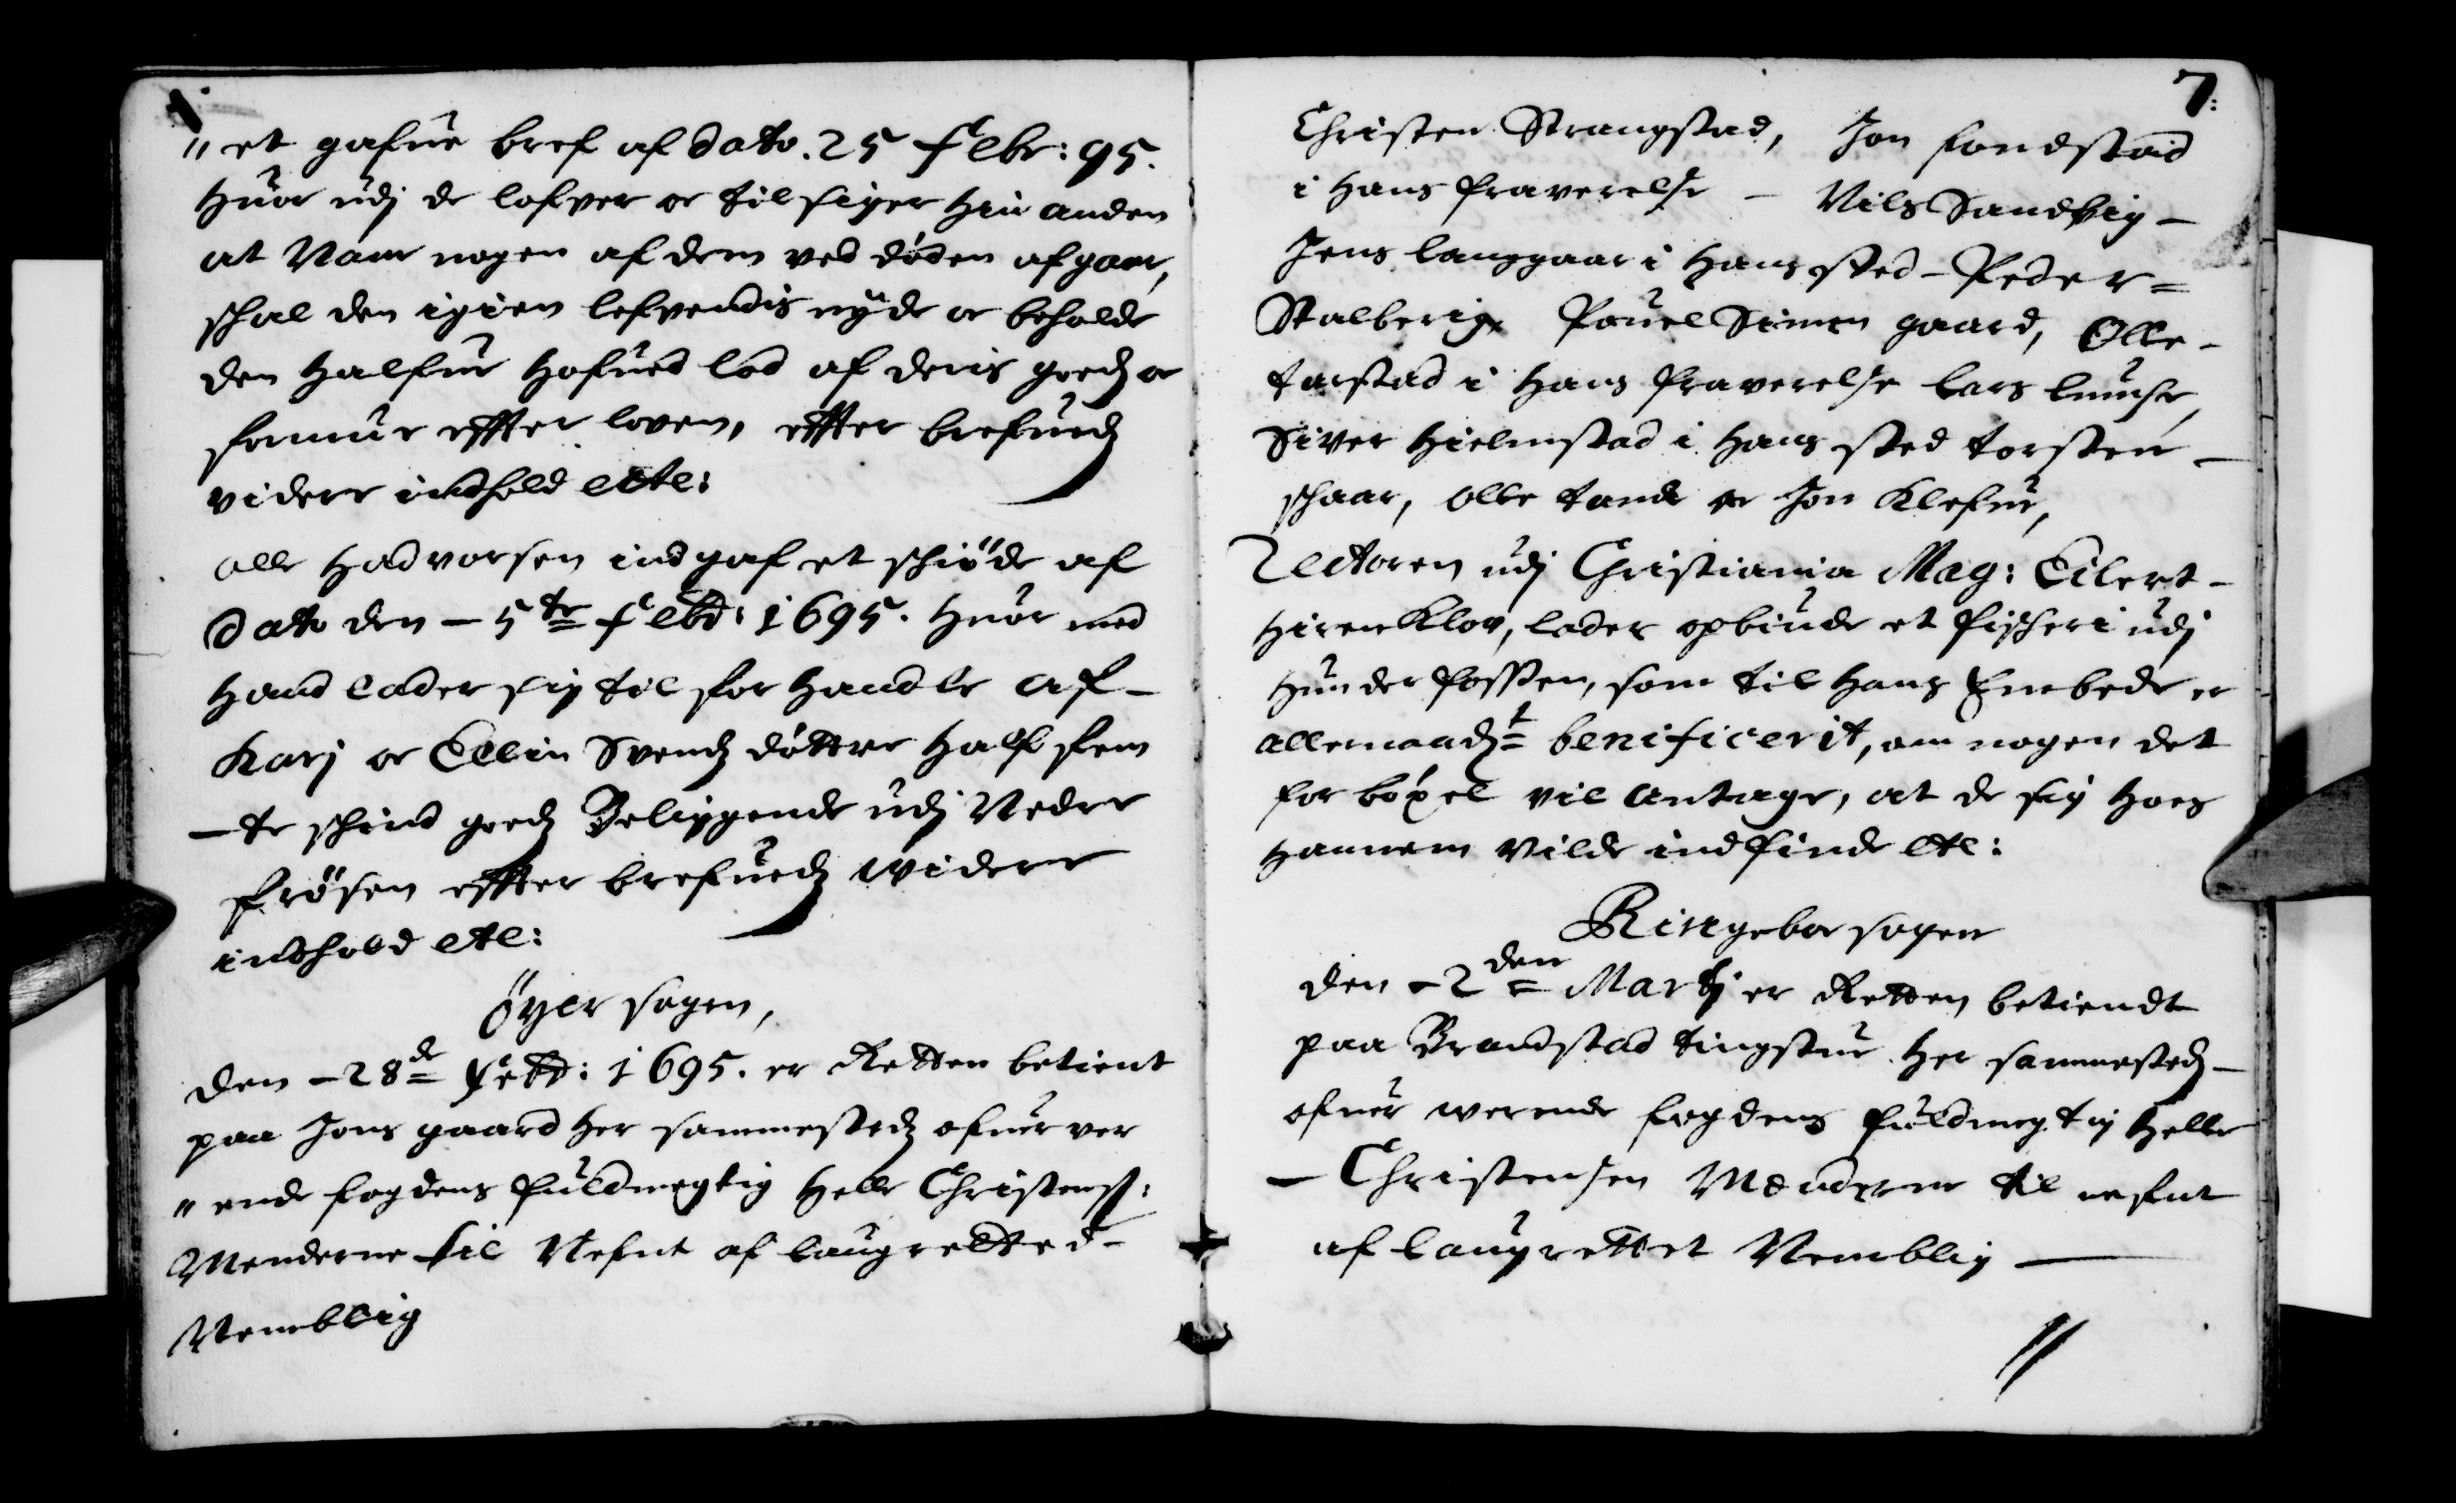 et gafue bref af dato. 25 Febr: 95.
huor udj de lofver oc tilsiger hin anden
at Naar nogen af dem ved döden afgaar,
schal den igien lefvendis nyde oc beholde
den halfue hofued lod af deris goedz oc
formue effter loven, effter brefuedz
videre indhold etc:
Olle Hadvorsen indgaf et schiöde af
Dato den - 5te Febr: 1695. huor med
hand lader sig til for handle af -
Karj oc Ellin Svendz döttre half fem
- te schind goedz Beliggende udj Nedre
Frösen effter brefuedz widere
indhold etc:
öyer sogen,
Den - 28de Febr: 1695. er Retten betient
paa Jons gaard her sammestedz ofuer ver
" ende fogdens fuldmegtig Helle Christens:
Menderne til Nefnt af laugretted -
Nemblig
7:
Christen Strangstad, Jon Fondstad
i hans fraverelse - Nils Sandvig -
Jens langgaar i hans sted - Peder =
Stalberig Pouel Simen gaard, Olle -
torstad i hans fraverelse Lars lunche,
Siver Hielmstad i hans sted torsten -
schaar, olle tande oc Jon Klefue,
Lectoren udj Christiania Mag: Eilert -
Hirneklov, lader opbiude et fischeri udj
Hunder fossen, som til hans Embede er
allernaadzt benificerit, om nogen det
for böxel vil antage, at de sig hoes
hannem vilde indfinde etc:
Ringeboe sogen
Den - 2den Martj er Retten betiendt
paa Brandstad tingstue her sammestedz -
ofuer werende fogdens fuldmegtig Helle
- Christensen Mænderne til nefnt
af laugrettet Nemblig -